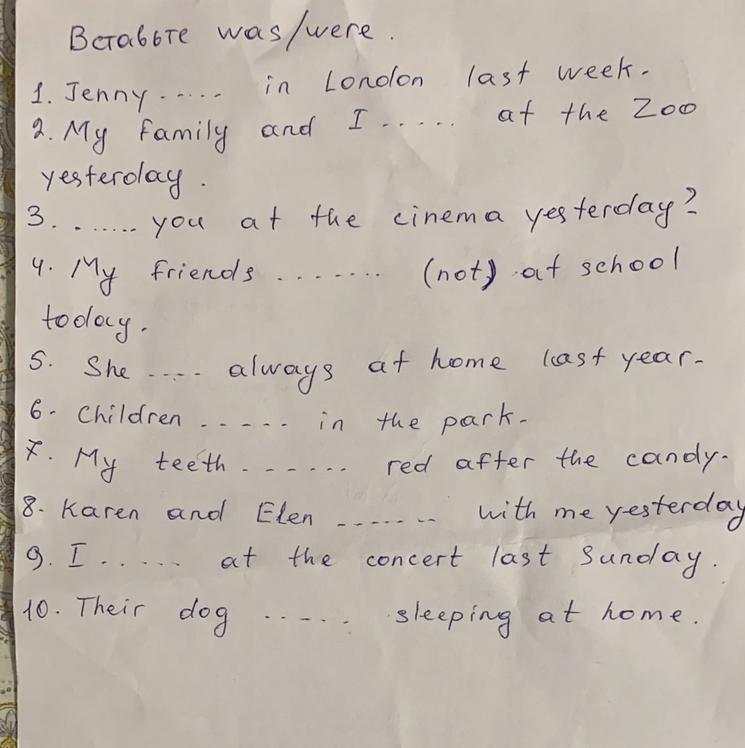 Вставьте was/were.
1. Jenny ..... in London last week.
2. My family and I ..... at the Zoo
yesterday.
3. ....... you at the cinema yesterday?
4. My friends ....... (not) at school
today.
5. She .... always at home last year.
6. Children ..... in the park.
7. My teeth ...... red after the candy.
8. Karen and Elen ....... with me yesterday
9. I ..... at the concert last Sunday.
10. Their dog ..... sleeping at home.